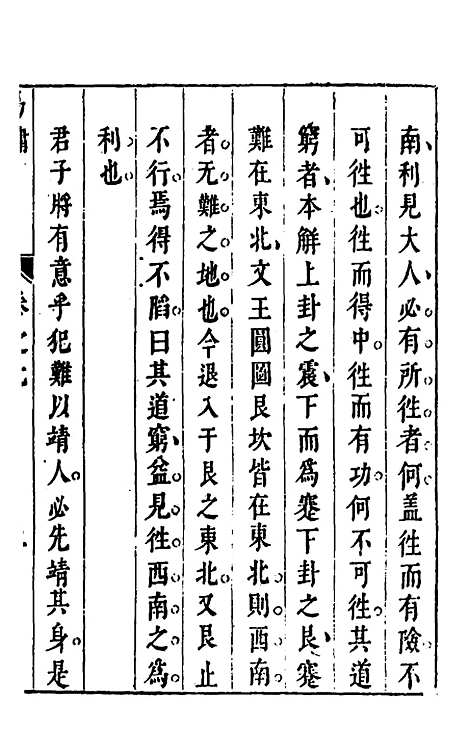 南利見大人必有所徃者何蓋徃而有險不
可徃也徃而得中徃而有功何不可徃其道
窮者本解上卦之震下而爲蹇下卦之艮蹇
難在東北文王圓圖艮坎皆在東北則西南
者无難之地也今退入于艮之東北又艮止
不行焉得不陷曰其道窮益見徃西南之爲
利也
君子將有意乎犯難以靖人必先靖其身是